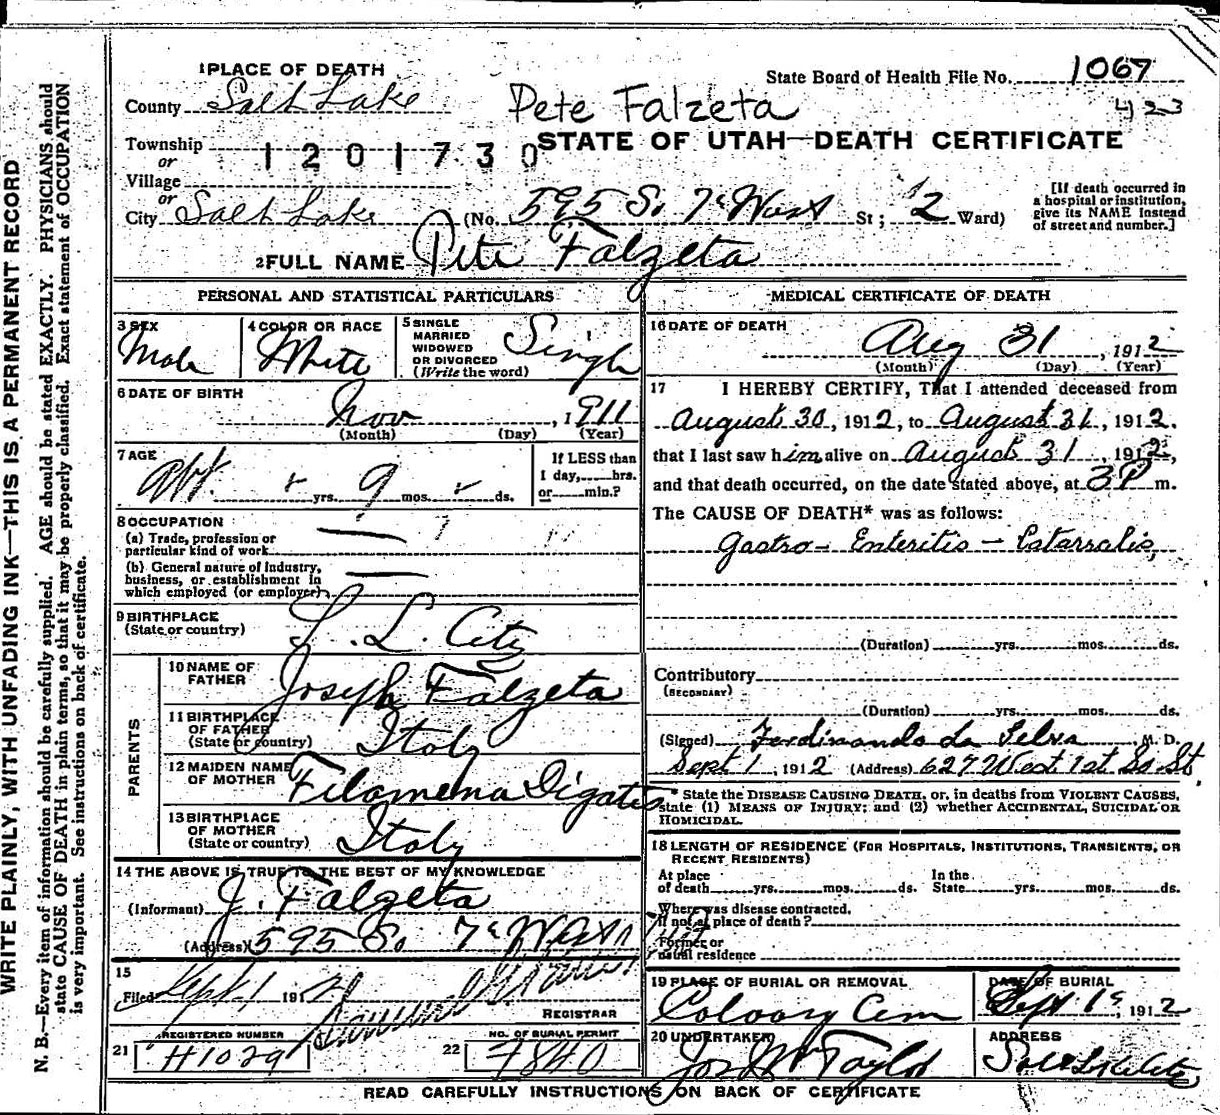 WRITE PLAINLY, WITH UNFADING INK—THIS IS A PERMANENT RECORD
N. B.—Every item of information should be carefully supplied. AGE should be stated EXACTLY. PHYSICIANS should
state CAUSE OF DEATH in plain terms, so that it may be properly classified. Exact statement of OCCUPATION
is very important. See instructions on back of certificate.
1 PLACE OF DEATH
State Board of Health File No. 1067
County Salt Lake
Pete Falzeta
423
STATE OF UTAH—DEATH CERTIFICATE
Township
or
1201730
Village
or
City Salt Lake (No. 595 So 7th West St; 2 Ward)
[If death occurred in
a hospital or institution,
give its NAME instead
of street and number.]
2 FULL NAME Pete Falzeta
PERSONAL AND STATISTICAL PARTICULARS
3 SEX
Male
4 COLOR OR RACE
White
5 SINGLE
MARRIED
WIDOWED
OR DIVORCED
(Write the word)
Single
6 DATE OF BIRTH
Nov , 1911
(Month) (Day) (Year)
7 AGE
Abt. yrs. 9 mos. ds.
If LESS than
1 day, hrs.
or min.?
8 OCCUPATION
(a) Trade, profession or
particular kind of work
(b) General nature of industry,
business, or establishment in
which employed (or employer)
9 BIRTHPLACE
(State or country)
S. L. City
PARENTS
10 NAME OF
FATHER
Joseph Falzeta
11 BIRTHPLACE
OF FATHER
(State or country)
Italy
12 MAIDEN NAME
OF MOTHER
Filomena
13 BIRTHPLACE
OF MOTHER
(State or country)
Italy
14 THE ABOVE IS TRUE TO THE BEST OF MY KNOWLEDGE
(Informant) J. Falzeta
(Address) 595 So 7th West
15
Filed Sept 1 1912
REGISTRAR
REGISTERED NUMBER
21 H1029
NO. OF BURIAL PERMIT
22 7840
MEDICAL CERTIFICATE OF DEATH
16 DATE OF DEATH
Aug 31 , 1912
(Month) (Day) (Year)
17 I HEREBY CERTIFY, That I attended deceased from
August 30, 1912, to August 31, 1912,
that I last saw him alive on August 31, 1912,
and that death occurred, on the date stated above, at 3 P m.
The CAUSE OF DEATH* was as follows:
Gastro-Enteritis - Catarralis,
(Duration) yrs. mos. ds.
Contributory
(SECONDARY)
(Duration) yrs. mos. ds.
(Signed) Ferdinando La Selva M. D.
Sept 1, 1912 (Address) 627 West 1st So. St.
* State the DISEASE CAUSING DEATH, or, in deaths from VIOLENT CAUSES,
state (1) MEANS OF INJURY; and (2) whether ACCIDENTAL, SUICIDAL OR
HOMICIDAL.
18 LENGTH OF RESIDENCE (FOR HOSPITALS, INSTITUTIONS, TRANSIENTS, OR
RECENT RESIDENTS)
At place In the
of death yrs. mos. ds. State yrs. mos. ds.
Where was disease contracted,
if not at place of death?
Former or
usual residence
19 PLACE OF BURIAL OR REMOVAL
Calvary Cem
DATE OF BURIAL
Sept 1st, 1912
20 UNDERTAKER
Jos Wm Taylor
ADDRESS
Salt Lake City
READ CAREFULLY INSTRUCTIONS ON BACK OF CERTIFICATE